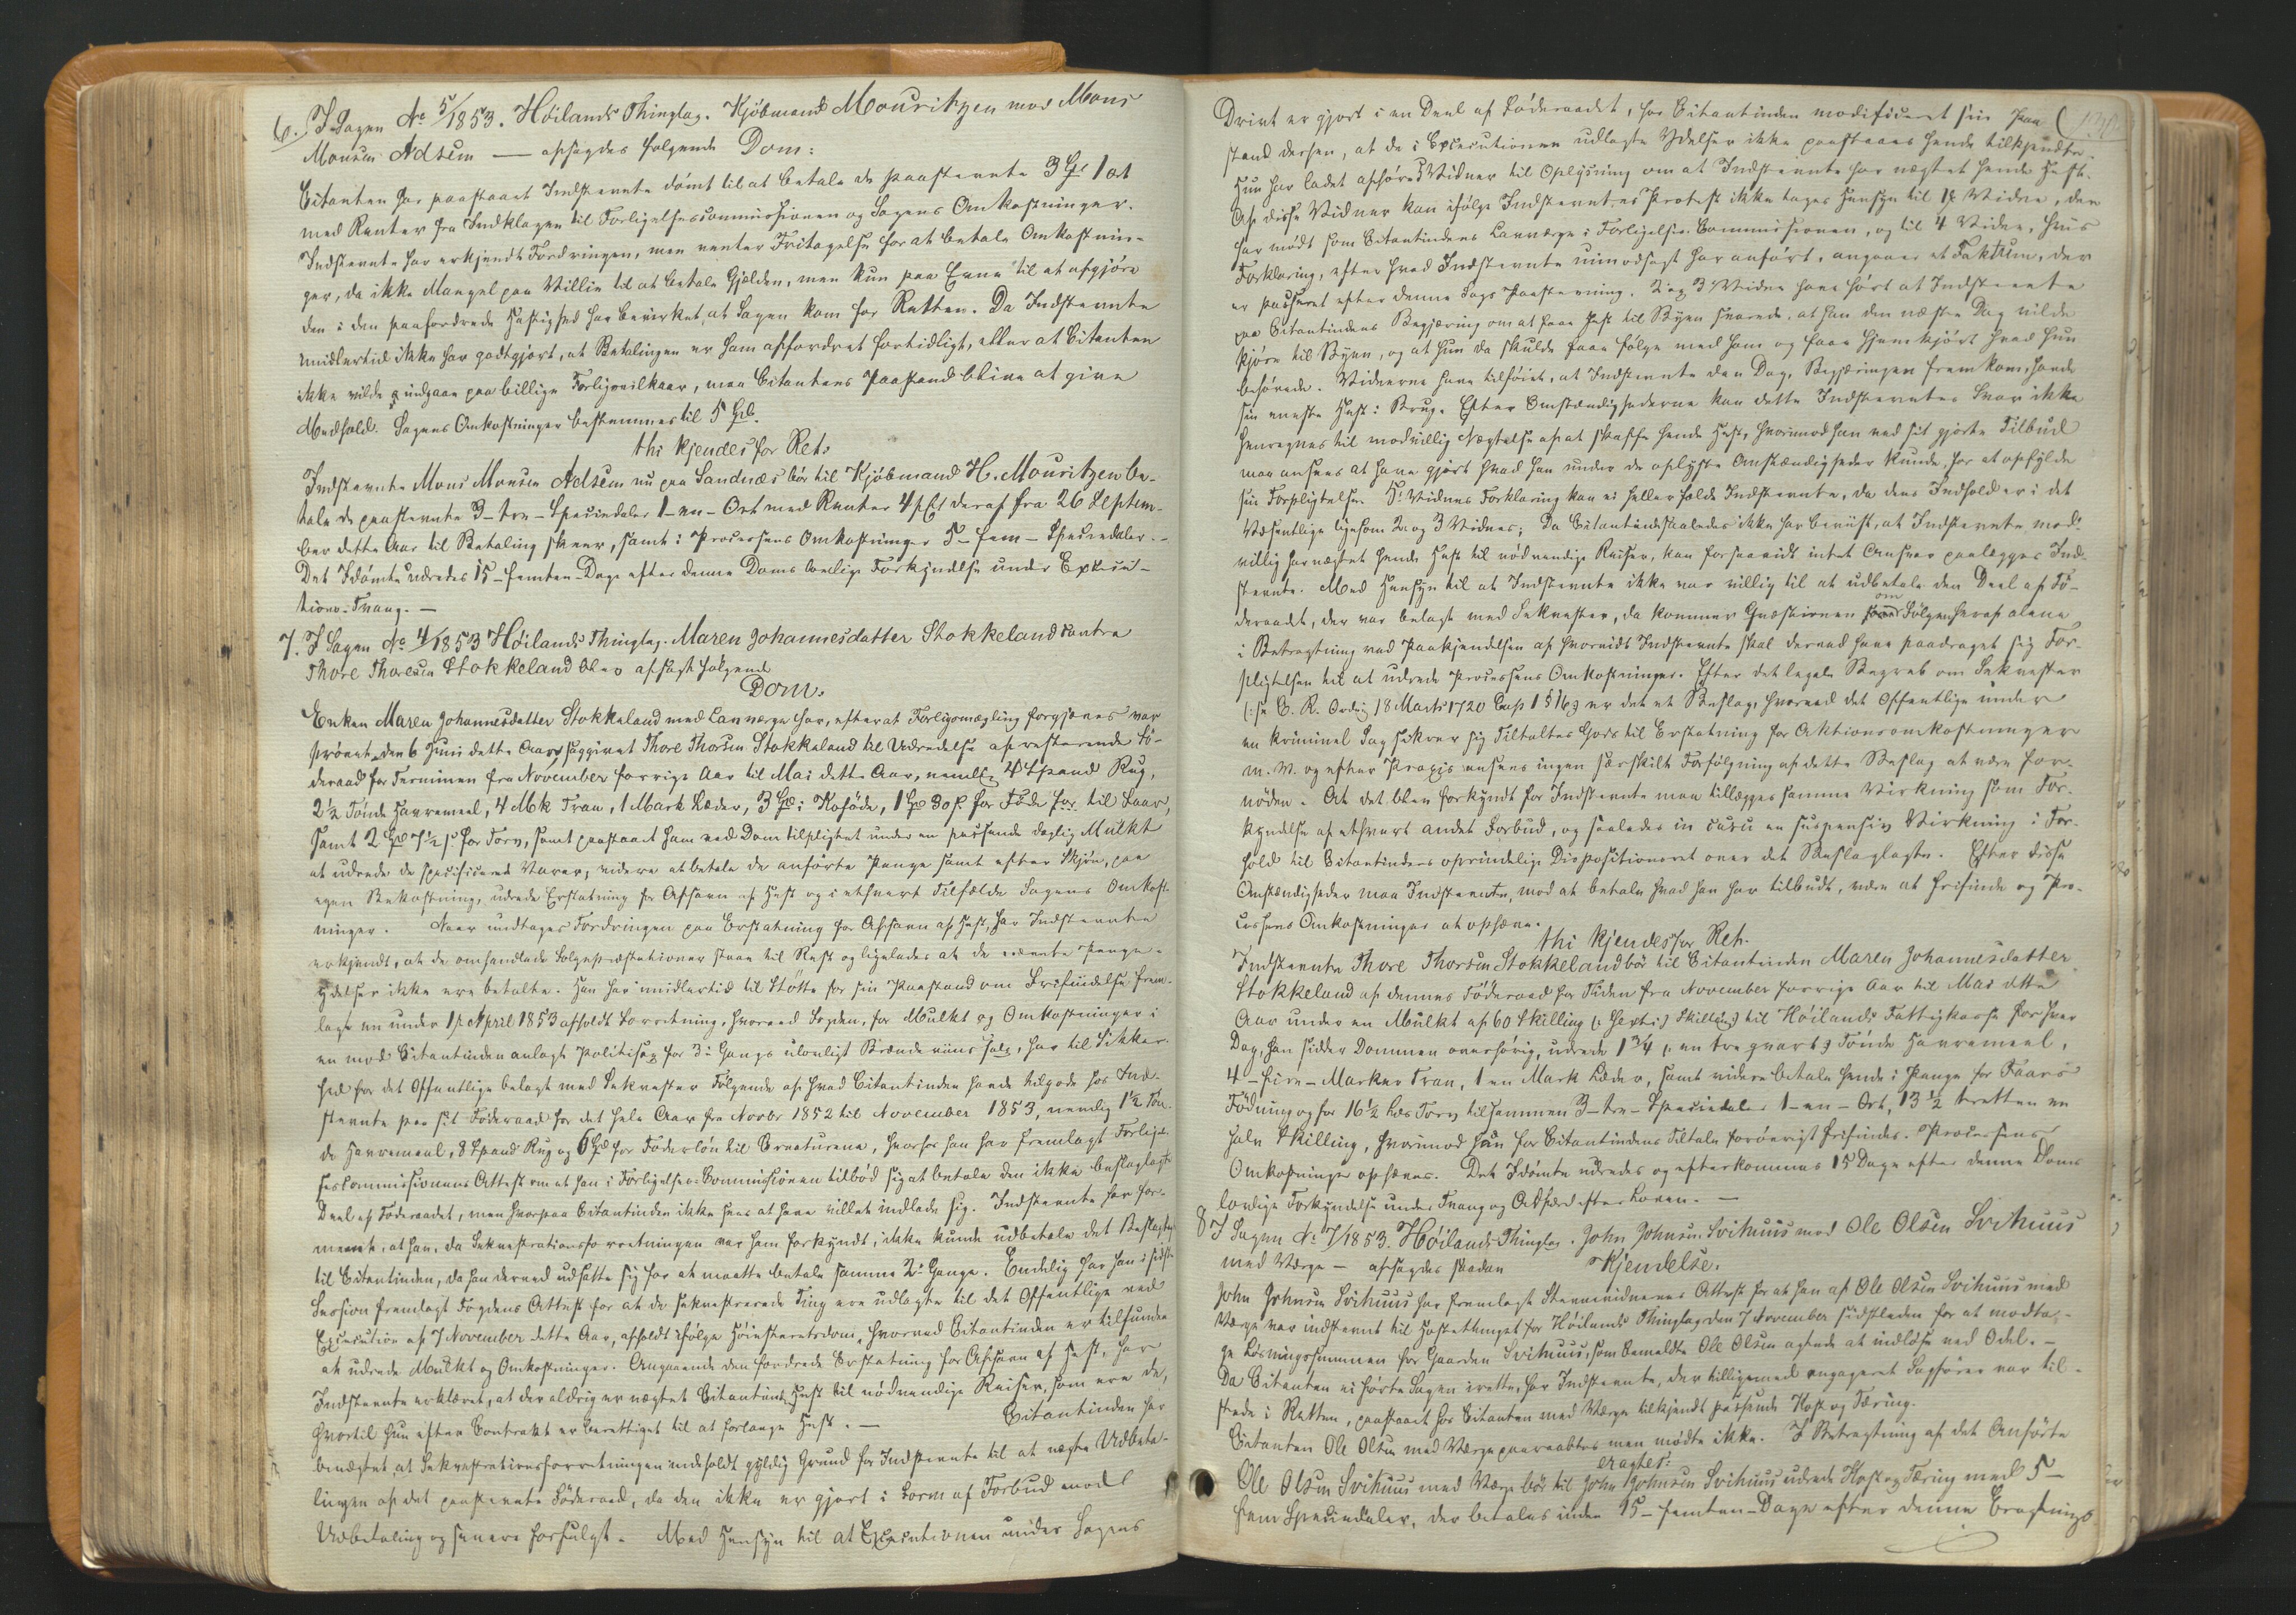 6. I Sagen No 5/1853. Höilands Thinglag. Kjöbmand Mouritzen mod Mons
Monsen Adsem — afsagdes følgende Dom:
Citanten har paastaaet Indstevnte dömt til at betale de paastevnte 3 Spd 1 ort
med Renter fra Indklagen til Forligelsescommissionen og Sagens Omkostninger.
Indstevnte har erkjendt Fordringen, men venter Fritagelse for at betale Omkostnin-
ger, da ikke Mangel paa Villie til at betale Gjælden, men kun paa Evne til at afgjöre
den i den paafordrede Hastighed har bevirket, at Sagen kom for Retten. Da Indstevnte
imidlertid ikke har godtgjort, at Betalingen er ham affordret for tidligt, eller at Citanten
ikke vilde indgaae paa billige Forligsvilkaar, maa Citantens Paastand blive at give
Medhold. Sagens Omkostninger bestemmes til 5 Spd.
thi kjendes for Ret:
Indstevnte Mons Monsen Adsem nu paa Sandnæs bör til Kjöbmand H. Mouritzen be-
tale de paastevnte 3 – tre – Speciedaler 1 – en – Ort med Renter 4 pCt deraf fra 26 Septem-
ber dette Aar til Betaling skeer, samt i Processens Omkostninger 5 – fem – Speciedaler. –
Det Idömte udredes 15 – femten Dage efter denne Doms lovlige Forkyndelse under Execu-
tions-Tvang. —
7. I Sagen No 4/1853 Höilands Thinglag. Maren Johannesdatter Stokkeland contra
Thore Thoresen Stokkeland blev afsagt følgende
Dom.
Enken Maren Johannesdatter Stokkeland med Laugværge har, efterat Forligsmægling forgjæves var
prövet, den 6 Juni dette Aar, saggivet Thore Thorsen Stokkeland til Udredelse af resterende Fö-
deraad for Terminen fra November forrige Aar til Mai dette Aar, nemlig 4 Spand Rug,
2½ Tönde Havremeel, 4 Mk Tran, 1 Mark Læder, 3 Spd i Kofôde, 1 Spd 80 s. for Föde for til Faar,
samt 2 Spd 7½ s. for Torv, samt paastaaet ham ved Dom tilpligtet under en passende daglig Mulkt
at udrede de specificerede Varer, videre at betale de anførte Penge samt efter Skjön, paa
egen Bekostning, udrede Erstatning for Afsavn af Hest og i ethvert Tilfælde Sagens Omkost-
ninger. Naar undtages Fordringen paa Erstatning for Afsavn af Hest, har Indstevnte
erkjendt, at de omhandlede Folgepræstationer staae til Rest og ligeledes at de nævnte Penge-
ydelser ikke ere betalte. Han har imidlertid til Stötte for sin Paastand om Frifindelse frem-
lagt en under 1ste April 1853 afholdt Forretning, hvorved Fogden, for Mulkt og Omkostninger i
en mod Citantinden anlagt Politisag for 3die Gangs ulovligt Brændeviins Salg, har til Sikker-
hed for det Offentlige belagt med Sekvester Følgende af hvad Citantinden havde tilgode hos Ind-
stevnte paa sit Föderaad for det hele Aar fra Novbr 1852 til November 1853, nemlig 1½ Tön-
de Havremeel, 8 Spand Rug og 6 Spd for Foderlön til Creaturene, hvorfor han har fremlagt Forligel-
sescommissionens Attest om at han i Forligelses-Commissionen tilböd sig at betale den ikke beslaglagte
Deel af Föderaadet, men hvorpaa Citantinden ikke sees at have villet indlade sig. Indstevnte har for-
meent, at han, da Sekvestrationsforretningen var ham forkyndt, ikke kunde udbetale det Beslaglagte
til Citantinden, da han derved udsatte sig for at maatte betale samme 2de Gange. Endelig har han i sidste
Session fremlagt Fogdens Attest for at de sekvestrerede Ting ere udlagte til det Offentlige ved
Execution af 7 November dette Aar, afholdt ifølge Höiesteretsdom, hvorved Citantinden er tilfunden
at udrede Mulkt og Omkostninger. Angaaende den fordrede Erstatning for Afsavn af Hest, har
Indstevnte erklæret, at der aldrig er nægtet Citantinden Hest til nödvendige Reiser, som ere de,
hvortil hun efter Contrakt er berettiget til at forlange Hest. — Citantinden har
benægtet at Sekvestrationsforretningen indeholdt gyldig Grund for Indstevnte til at nægte Udbeta-
lingen af det paastevnte Föderaad, da den ikke er gjort i Form af Forbud mod
Udbetaling og senere forfulgt. Med Hensyn til at Executionen under Sagens
Drivt er gjort i en Deel af Föderaadet, har Citantinden modificeret sin Paa-
stand derhen, at de i Executionen udlagte Ydelser ikke paastaaes hende tilkjendte.
Hun har ladet afhöre 5 Vidner til Oplysning om at Indstevnte har nægtet hende Hest.
Af disse Vidner kan ifølge Indstevntes Protest ikke tages Hensyn til 1ste Vidne, der
har mödt som Citantindens Laugværge i Forligelses-Commissionen, og til 4 Vidne, hvis
Forklaring, efter hvad Indstevnte uimodsagt har anført, angaaer et Faktum, der
er passeret efter denne Sags Paastevning. 2 og 3 Vidne have hört at Indstevnte
paa Citantindens Begjæring om at faae Hest til Byen svarede, at han den næste Dag vilde
kjöre til Byen, og at hun da skulde faae følge med ham og faae hjemkjört hvad hun
behövede. Vidnerne have tilföiet, at Indstevnte den Dag, Begjæringen fremkom, havde
sin eneste Hest i Brug. Efter Omstændighederne kan dette Indstevntes Svar ikke
henregnes til modvillig Nægtelse af at skaffe hende Hest, hvorimod han ved sit gjorte Tilbud
maa ansees at have gjort hvad han under de oplyste Omstændigheder kunde, for at opfylde
sin Forpligtelse. 5te Vidnes Forklaring kan ei heller fælde Indstevnte, da dens Indhold er i det
Væsentlige ligesom 2 og 3 Vidnes; Da Citantinden saaledes ikke har beviist, at Indstevnte mod-
villig har nægtet hende Hest til nödvendige Reiser, kan forsaavidt intet Ansvar paalægges Ind-
stevnte. Med Hensyn til at Indstevnte ikke var villig til at udbetale den Deel af Fö-
deraadet, der var belagt med Sekvester, da kommer Quæstionen om Følgen heraf alene
i Betragtning ved Paakjendelsen af hvorvidt Indstevnte skal derved have paadraget sig For-
pligtelsen til at udrede Processens Omkostninger. Efter det legale Begreb om Sekvester
(: se C. R. Ordng 18 Marts 1720 Cap 1 § 16 :) er det et Beslag, hvorved det Offentlige under
en kriminel Sag sikrer sig Tiltaltes Gods til Erstatning for Aktionsomkostninger
m. v. og efter Praxis ansees ingen særskilt Forfølgning af dette Beslag at være for-
nöden. At det blev forkyndt for Indstevnte maa tillægges samme Virkning som For-
kyndelse af ethvert andet Forbud, og saaledes in casu en suspensiv Virkning i For-
hold til Citantindens oprindelige Dispositionsret over det Beslaglagte. Efter disse
Omstændigheder maa Indstevnte, mod at betale hvad han har tilbudt, være at frifinde og Pro-
cessens Omkostninger at ophæve.
thi kjendes for Ret:
Indstevnte Thore Thorsen Stokkeland bör til Citantinden Maren Johannesdatter
Stokkeland af dennes Föderaad for Tiden fra November forrige Aar til Mai dette
Aar under en Mulkt af 60 Skilling (: sexti :) Skilling til Höilands Fattigkasse for hver
Dag, han sidder Dommen overhörig, udrede 1¾ (: en tre qvart :) Tönde Havremeel,
4 – fire – Marker Tran, 1 en Mark Læder, samt videre betale hende i Penge for Faars
Födning og for 16½ Læs Torv tilsammen 3 – tre – Speciedaler 1 – en – Ort, 13½ tretten en
halv Skilling, hvorimod han for Citantindens Tiltale forövrigt frifindes. Processens
Omkostninger ophæves. Det Idömte udredes og efterkommes 15 Dage efter denne Doms
lovlige Forkyndelse under Tvang og Adfærd efter Loven. —
8 I Sagen No 7/1853. Höilands Thinglag. John Johnsen Svihuus mod Ole Olsen Svihuus
med Værge — afsagdes saadan Kjendelse.
John Johnsen Svihuus har fremlagt Stevnevidnernes Attest for at han af Ole Olsen Svihuus med
Værge var indstevnt til Høstethinget for Höilands Thinglag den 7 November sidstleden for at modta-
ge Lösningssummen for Gaarden Svihuus, som bemeldte Ole Olsen agtede at indlöse ved Odel. –
Da Citanten ei förte Sagen irette, har Indstevnte, der tilligemed engageret Sagförer var til-
stede i Retten, paastaaet hos Citanten med Værge tilkjendt passende Kost og Tæring.
Citanten Ole Olsen med Værge paaraabtes men mödte ikke. I Betragtning af det Anförte
eragtes:
Ole Olsen Svihuus med Værge bör til John Johnsen Svihuus udrede Kost og Tæring med 5 –
fem Speciedaler, der betales inden 15 – femten – Dage efter denne Eragtnings